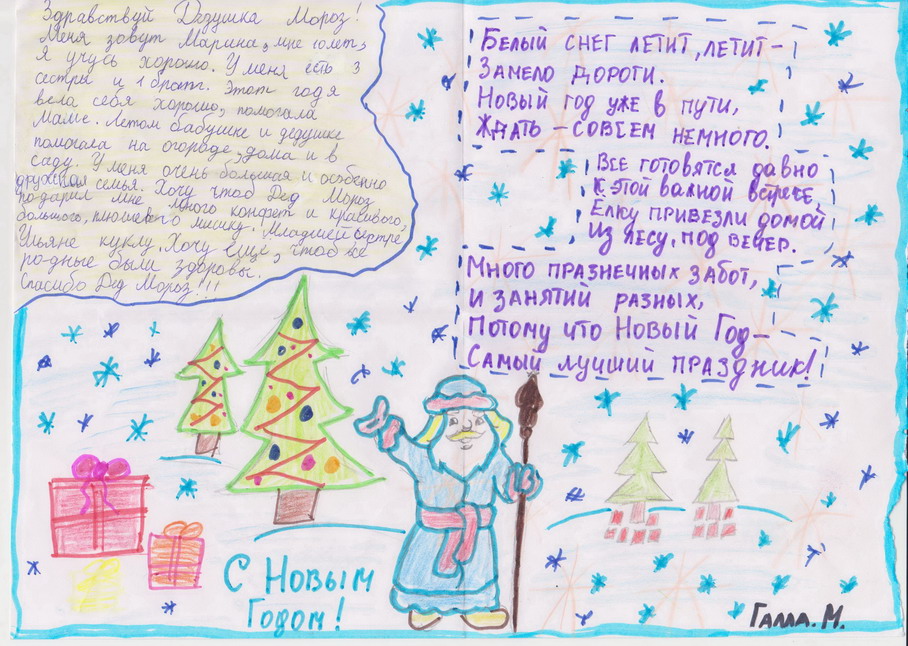 Здравствуй Дедушка Мороз!
Меня зовут Марина, мне 10 лет,
я учусь хорошо. У меня есть 3
сестры и 1 брат. Этот год я
вела себя хорошо, помогала
маме. Летом бабушке и дедушке
помогала на огороде, дома и в
саду. У меня очень большая и особенно
дружная семья. Хочу чтоб Дед Мороз
подарил мне много конфет и красивого,
большого, плюшевого мишку. Младшей сестре
Ульяне куклу. Хочу ещё, чтоб все
родные были здоровы.
Спасибо Дед Мороз!!!
Белый снег летит, летит –
Замело дороги.
Новый год уже в пути,
Ждать – совсем немного.
Все готовятся давно
К этой важной встрече,
Ёлку привезли домой
Из лесу, под вечер.
Много празнечных забот,
И занятий разных,
Потому что Новый Год –
Самый лучший праздник!
С Новым
Годом!
М.